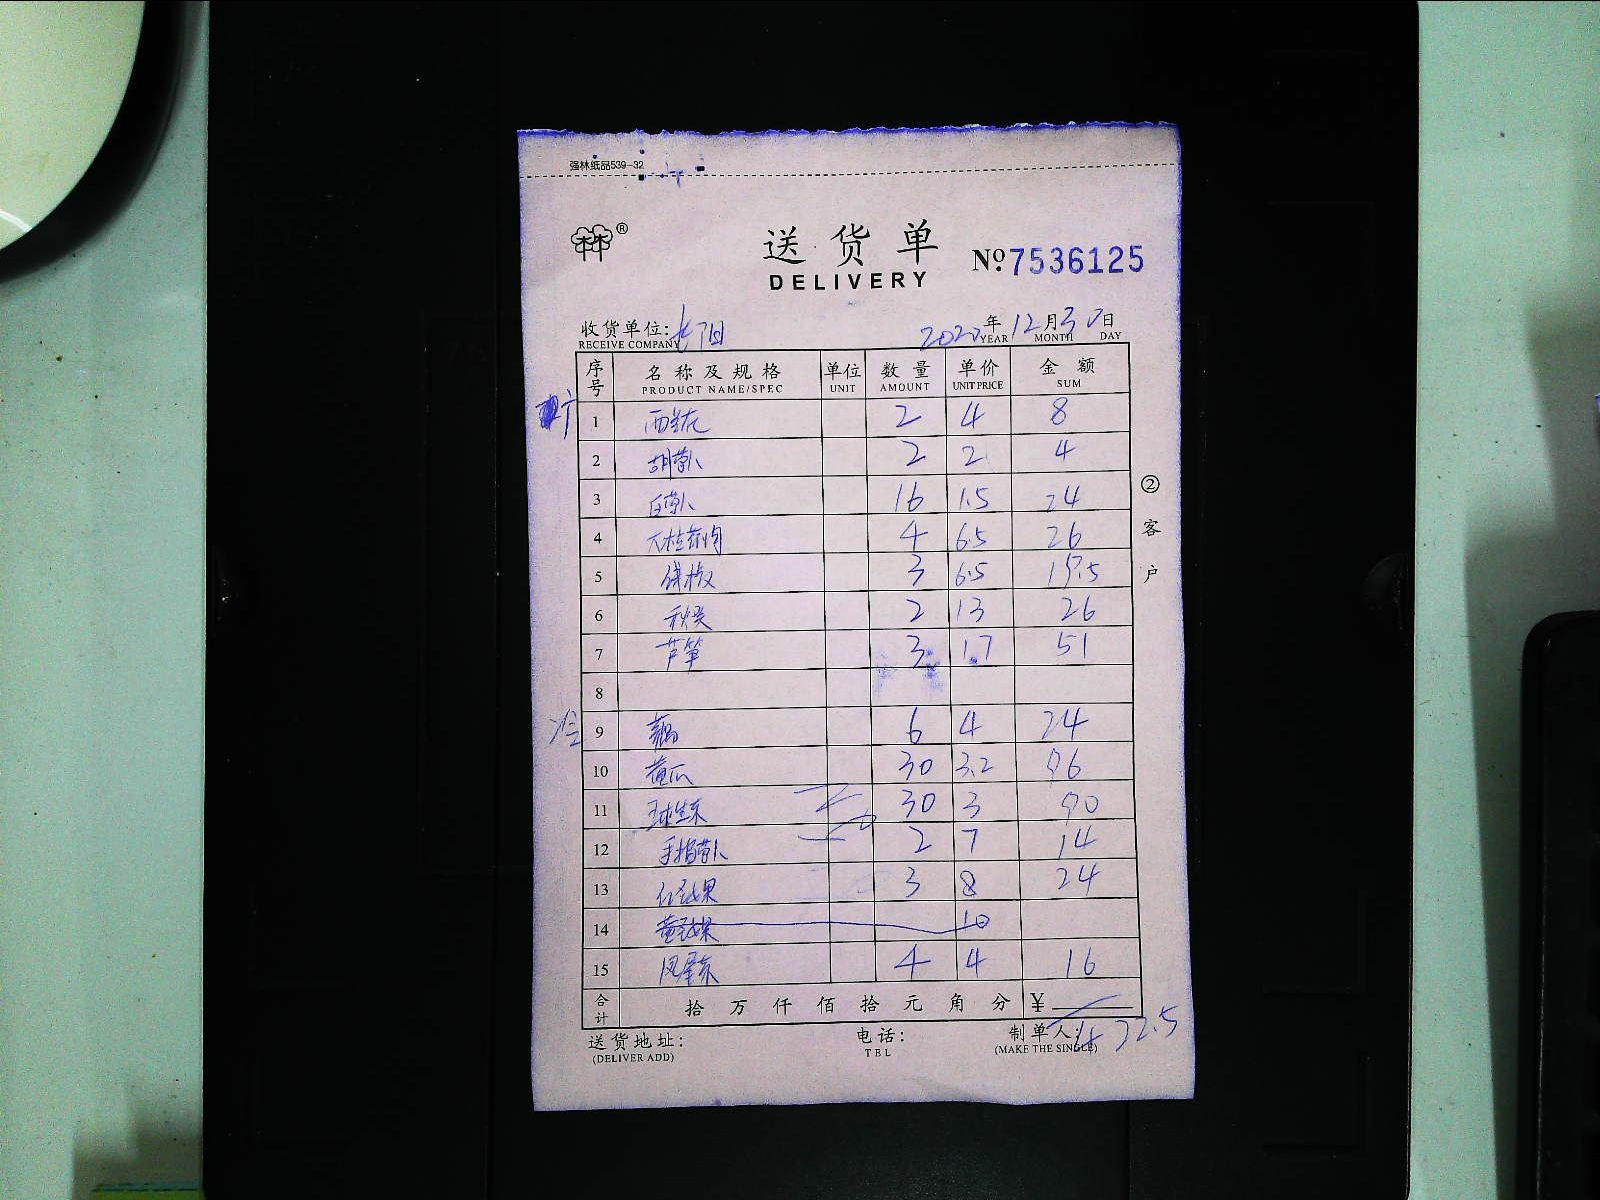 强林纸品539-32
林林®
送货单
DELIVERY
№7536125
收货单位:长阳 2020年12月30日
RECEIVE COMPANY YEAR MONTH DAY
序号 名称及规格 单位 数量 单价 金额
PRODUCT NAME/SPEC UNIT AMOUNT UNIT PRICE SUM
1 西芹 2 4 8
2 胡萝卜 2 2 4
3 白萝卜 16 1.5 24
4 4 6.5 26
5 3 6.5 19.5
6 秋葵 2 13 26
7 芦笋 3 1.7 51
8
9 藕 6 4 24
10 黄瓜 30 3.2 96
11 球生菜 30 3 90
12 手指萝卜 2 7 14
13 红圣女果 3 8 24
14 黄圣女果 10
15 4 4 16
合计 拾万仟佰拾元角分 ¥
②客户
送货地址: 电话: 制单人: 422.5
(DELIVER ADD) TEL (MAKE THE SINGLE)